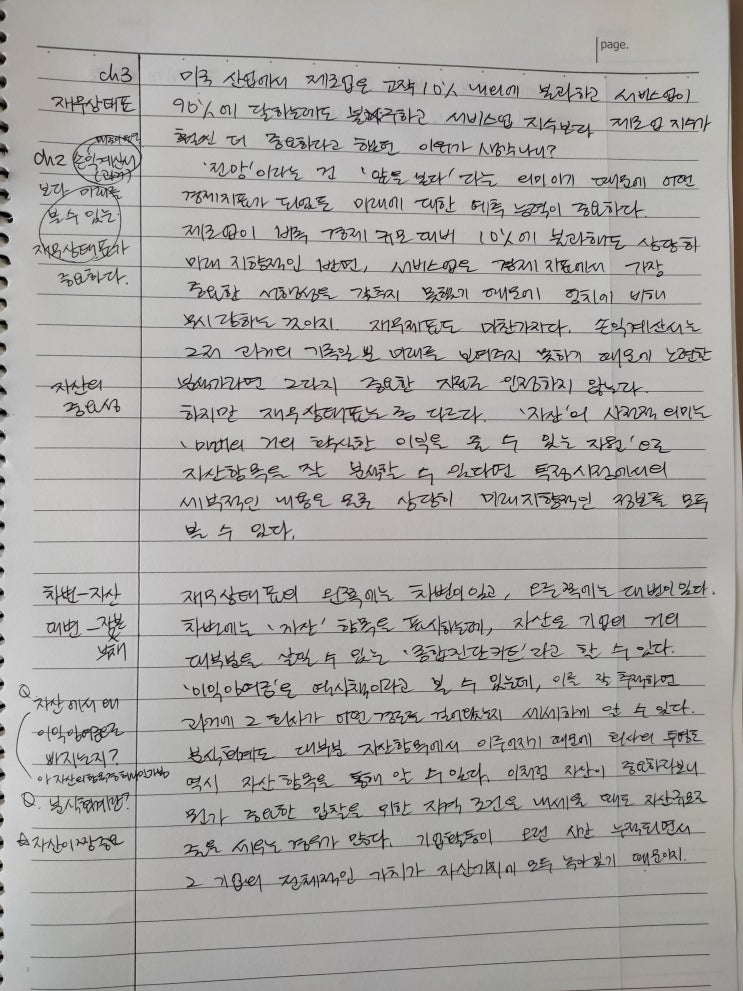 page.
ch3
재무상태표
ch2 손익계산서
(과거)
보다 미래를
볼 수 있는
재무상태표가
중요하다.
미국 산업에서 제조업은 고작 10% 내외에 불과하고 서비스업이
90%에 달하는데도 불구하고 서비스업 지수보다 제조업 지수가
훨씬 더 중요하다고 했던 이유가 생각나니?
'전망'이라는 건 '앞을 보다'라는 의미이기 때문에 어떤
경제지표가 되었든 미래에 대한 예측 능력이 중요하다.
제조업이 비록 경제 규모 대비 10%에 불과해도 상당히
미래 지향적인 반면, 서비스업은 경제지표에서 가장
중요한 선행성을 갖추지 못했기 때문에 덩치에 비해
무시당하는 것이지. 재무제표도 마찬가지다. 손익계산서는
그저 과거의 기록일 뿐 미래를 보여주지 못하기 때문에 노련한
분석가라면 그다지 중요한 지표로 인정하지 않는다.
자산의
중요성
하지만 재무상태표는 좀 다르다. '자산'의 사전적 의미는
'미래의 거의 확실한 이익을 줄 수 있는 자원'으로
자산항목을 잘 분석할 수 있다면 특정시점에서의
세부적인 내용은 물론 상당히 미래지향적인 정보를 모두
볼 수 있다.
차변-자산
대변-자본
부채
재무상태표의 왼쪽에는 차변이 있고, 오른쪽에는 대변이 있다.
차변에는 '자산' 항목을 표시하는데, 자산은 기업의 거의
대부분을 살필 수 있는 '종합진단카드'라고 할 수 있다.
'이익잉여금'은 역사책이라고 볼 수 있는데, 이를 잘 추적하면
과거에 그 회사가 어떤 경로로 걸어왔는지 세세하게 알 수 있다.
분식회계도 대부분 자산항목에서 이루어지기 때문에 회사의 투명도
역시 자산 항목을 통해 알 수 있다. 이처럼 자산이 중요하다보니
뭔가 중요한 입찰을 위한 자격 조건을 내세울 때도 자산규모
를 세우는 경우가 많다. 기업활동이 오랜 시간 누적되면서
그 기업의 전체적인 가치가 자산가치에 모두 녹아있기 때문이지.
Q 자산에서 왜
이익잉여금으로
빠지는지?
Q. 분식회계란?
자산이 짱 중요